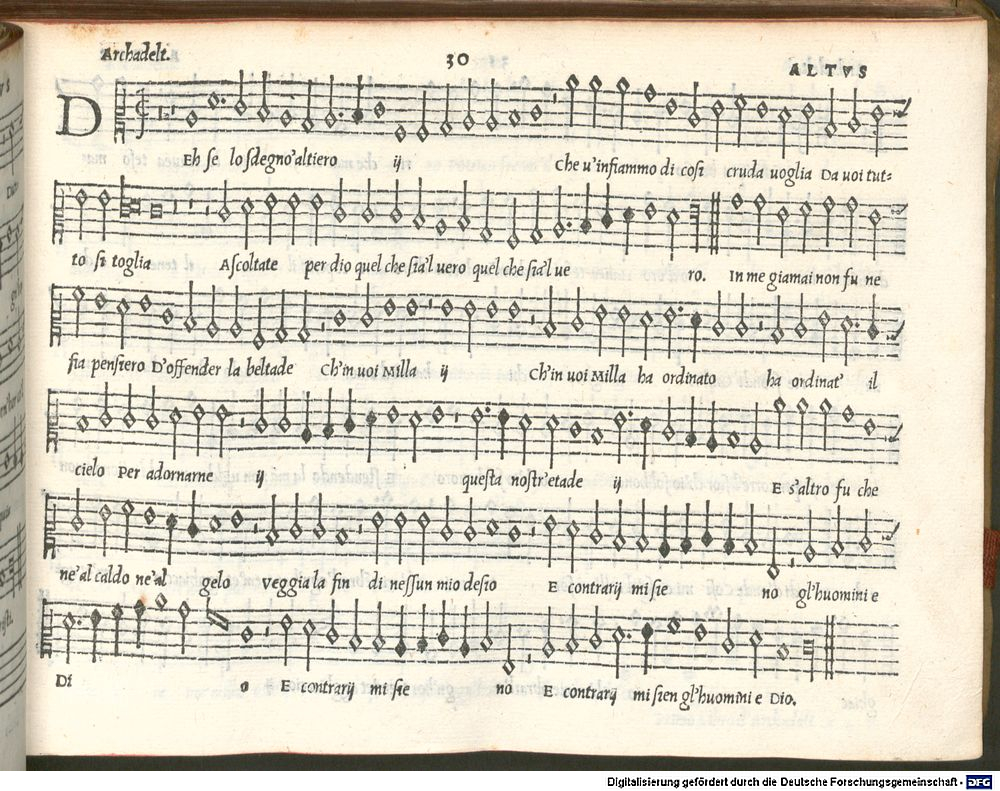 Archadelt.
30
ALTVS
D
Eh se lo sdegno'altiero ij Che u'infiammo di cosi cruda uoglia Da uoi tut=
to si toglia Ascoltate per dio quel che sia'l uero quel che sia'l ue ro. In me giamai non fu ne
fia pensiero D'offender la beltade Ch'in uoi Milla ij Ch'in uoi Milla ha ordinato ha ordinat' il
cielo Per adornarne ij questa nostr'etade ij E s'altro fu che
ne'al caldo ne'al gelo veggia la fin di nessun mio desio E contrarij mi sie no gl'huomini e
Di o E contrarij mi sie no E contrarij mi sien gl'huomini e Dio.
Digitalisierung gefördert durch die Deutsche Forschungsgemeinschaft - DFG